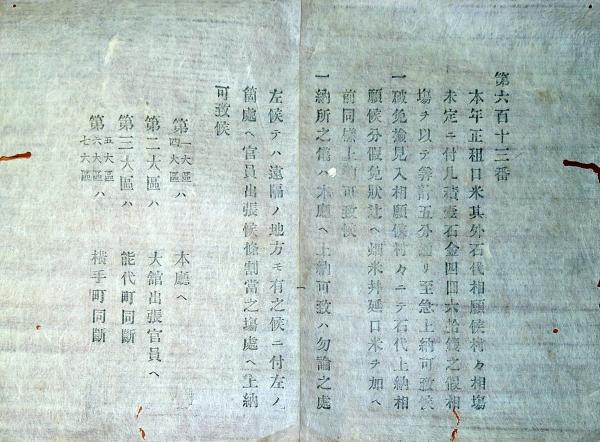 第六百十三番
本年正租口米其外石代相願候村々相場
未定ニ付凡積壹石金四圓六拾錢之假相
塲ヲ以テ算計五分通リ至急上納可致候
一破免撿見入相願候村々ニテ石代上納相
願候分假免狀辻ヘ蝦米幷延口米ヲ加ヘ
前同樣上納可致候
一納所之電ハ本廳ヘ上納可致ハ勿論之處
左候テハ遠隔ノ地方モ有之候ニ付左ノ
箇處ヘ官員出張候條割當之塲處ヘ上納
可致候
第一大區 四大區ハ 本廳ヘ
第二大區ハ 大舘出張官員ヘ
第三大區ハ 能代町同斷
第五大區 六大區 七大區ハ 橫手町同斷